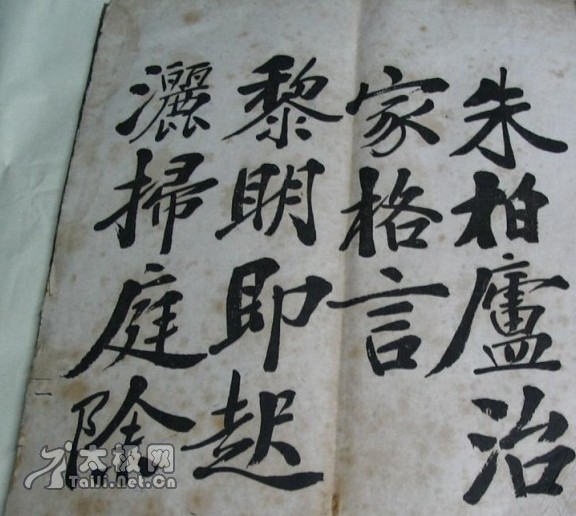 朱柏廬治
家格言
黎明即起
灑掃庭除
一
太极网
Taiji.Net.Cn